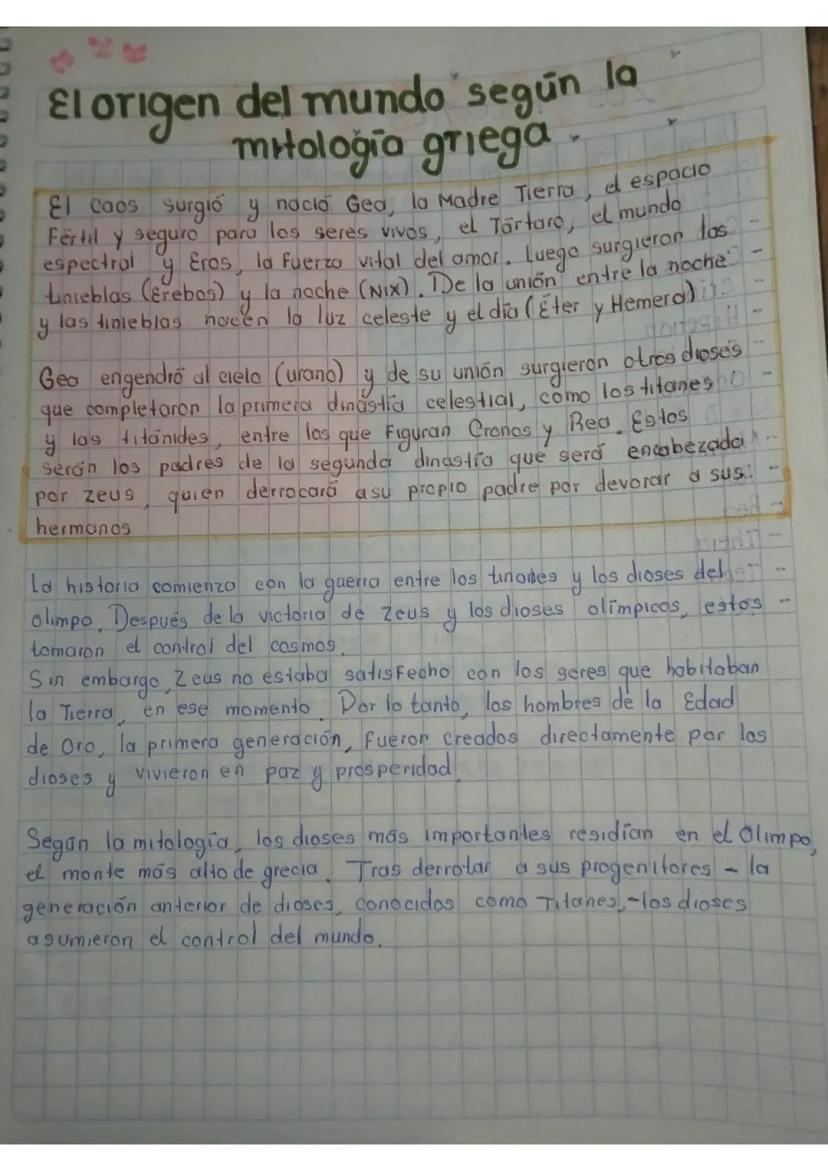 El origen del mundo según la
mitología griega
El caos surgió y nació Gea, la Madre Tierra, el espacio
Fértil y seguro para los seres vivos, el Tártaro, el mundo
espectral y Eros, la fuerza vital del amor. Luego surgieron las
tinieblas (Érebos) y la noche (Nix). De la unión entre la noche
y las tinieblas nacen la luz celeste y el día (Éter y Hemera)
Gea engendró al cielo (urano) y de su unión surgieron otros dioses
que completaron la primera dinastía celestial, como los titanes
y las titánides, entre los que Figuran Cronos y Rea. Estos
serán los padres de la segunda dinastía que será encabezada
por zeus, quien derrocará a su propio padre por devorar a sus
hermanos
La historia comienza con la guerra entre los y los dioses del
olimpo. Después de la victoria de Zeus y los dioses olímpicos, estos
tomaron el control del cosmos.
Sin embargo, Zeus no estaba satisfecho con los seres que habitaban
la Tierra, en ese momento. Por lo tanto, los hombres de la Edad
de Oro, la primera generación, Fueron creados directamente por los
dioses y vivieron en paz y prosperidad.
Según la mitología, los dioses más importantes residían en el Olimpo,
el monte más alto de grecia. Tras derrotar a sus progenitores - la
generación anterior de dioses, conocidos como Titanes,-los dioses
asumieron el control del mundo.